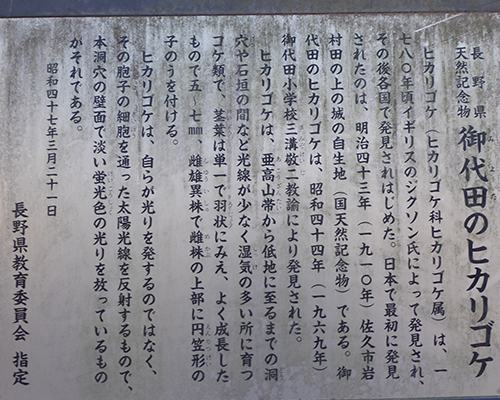 長野県
天然記念物
御代田のヒカリゴケ
みよた
ヒカリゴケ（ヒカリゴケ科ヒカリゴケ属）は、一
七八〇年頃イギリスのジクソン氏によって発見され、
その後各国で発見されはじめた。日本で最初に発見
されたのは、明治四十三年（一九一〇年）佐久市岩
村田の上の城の自生地（国天然記念物）である。御
代田のヒカリゴケは、昭和四十四年（一九六九年）
御代田小学校三溝敬二教諭により発見された。
ヒカリゴケは、亜高山帯から低地に至るまでの洞
穴や石垣の間など光線が少なく湿気の多い所に育つ
コケ類で、茎葉は単一で羽状にみえ、よく成長した
もので五〜七㎜、雌雄異株で雌株の上部に円笠形の
子のうを付ける。
ヒカリゴケは、自らが光りを発するのではなく、
その胞子の細胞を通った太陽光線を反射するもので、
本洞穴の壁面で淡い蛍光色の光りを放っているもの
がそれである。
昭和四十七年三月二十一日
長野県教育委員会 指定